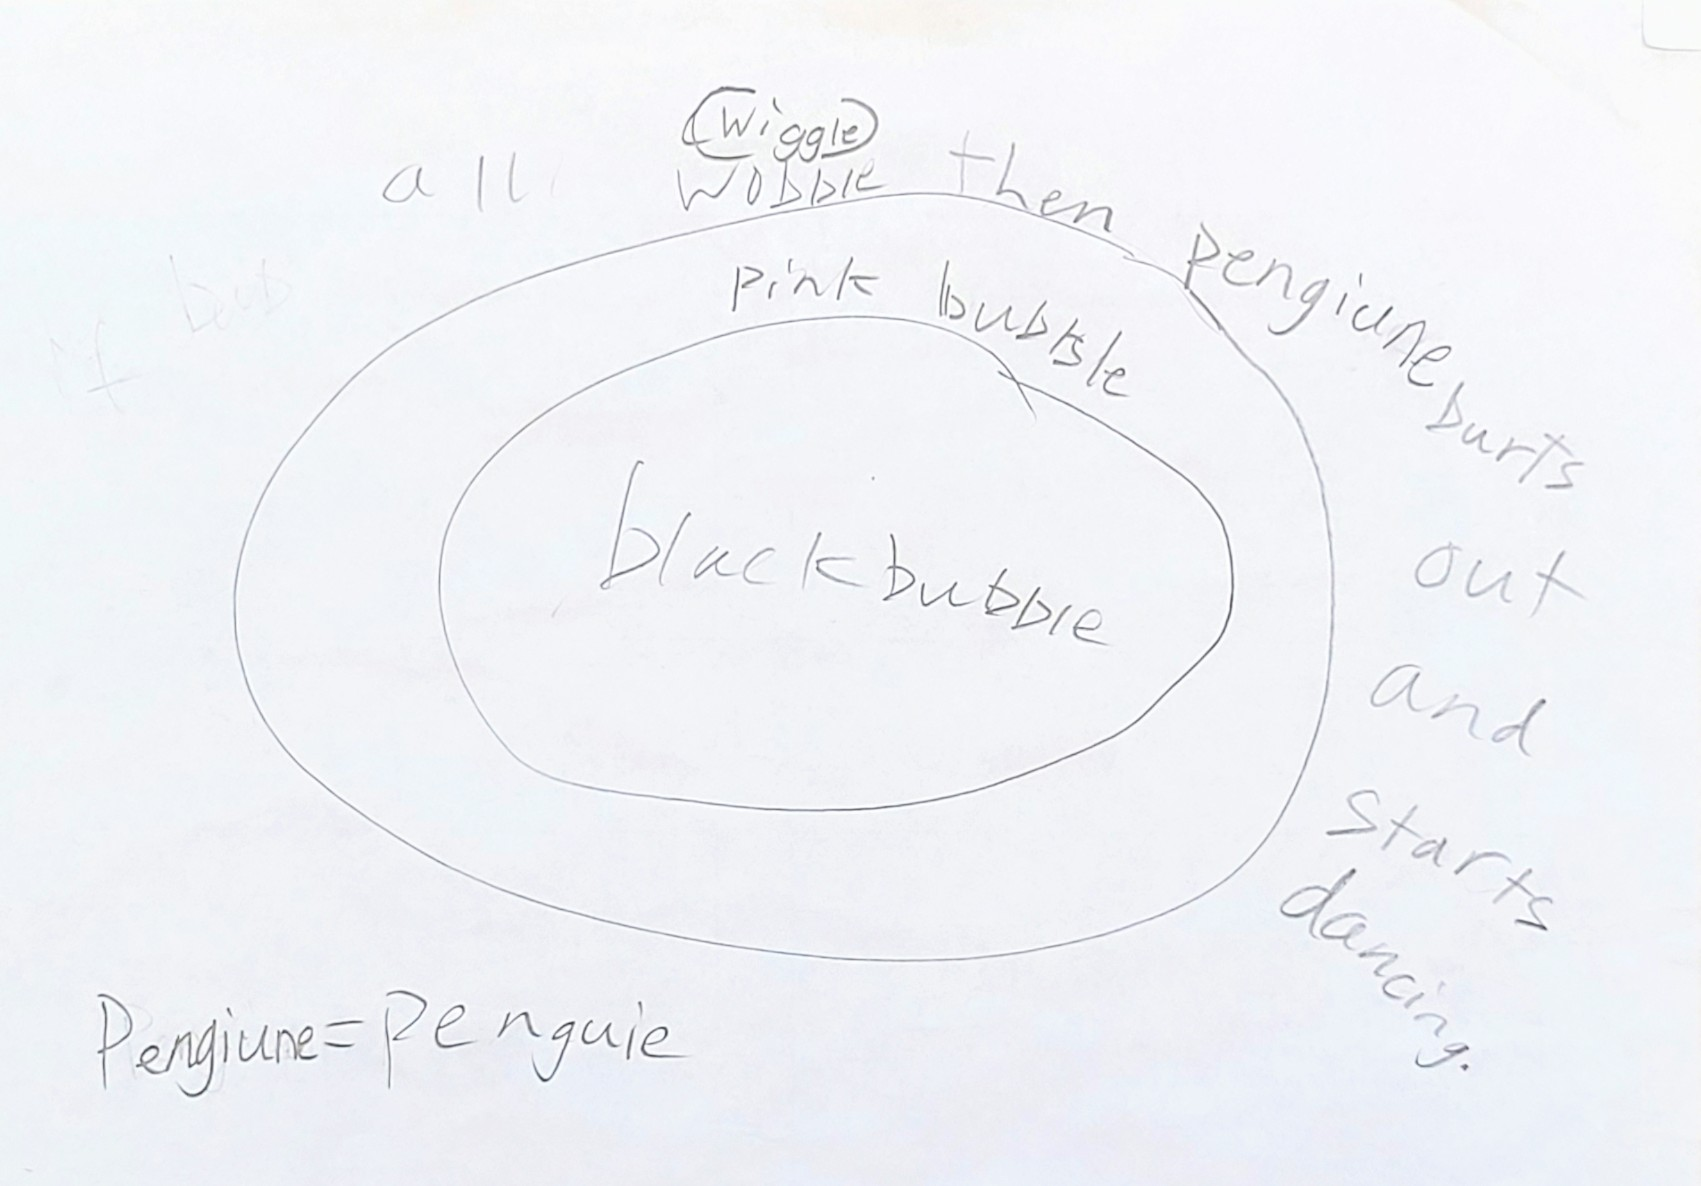 Wiggle
if bub all wobble then pengiune burts out and starts dancing.
pink bubble
black bubble
Pengiune = penguie